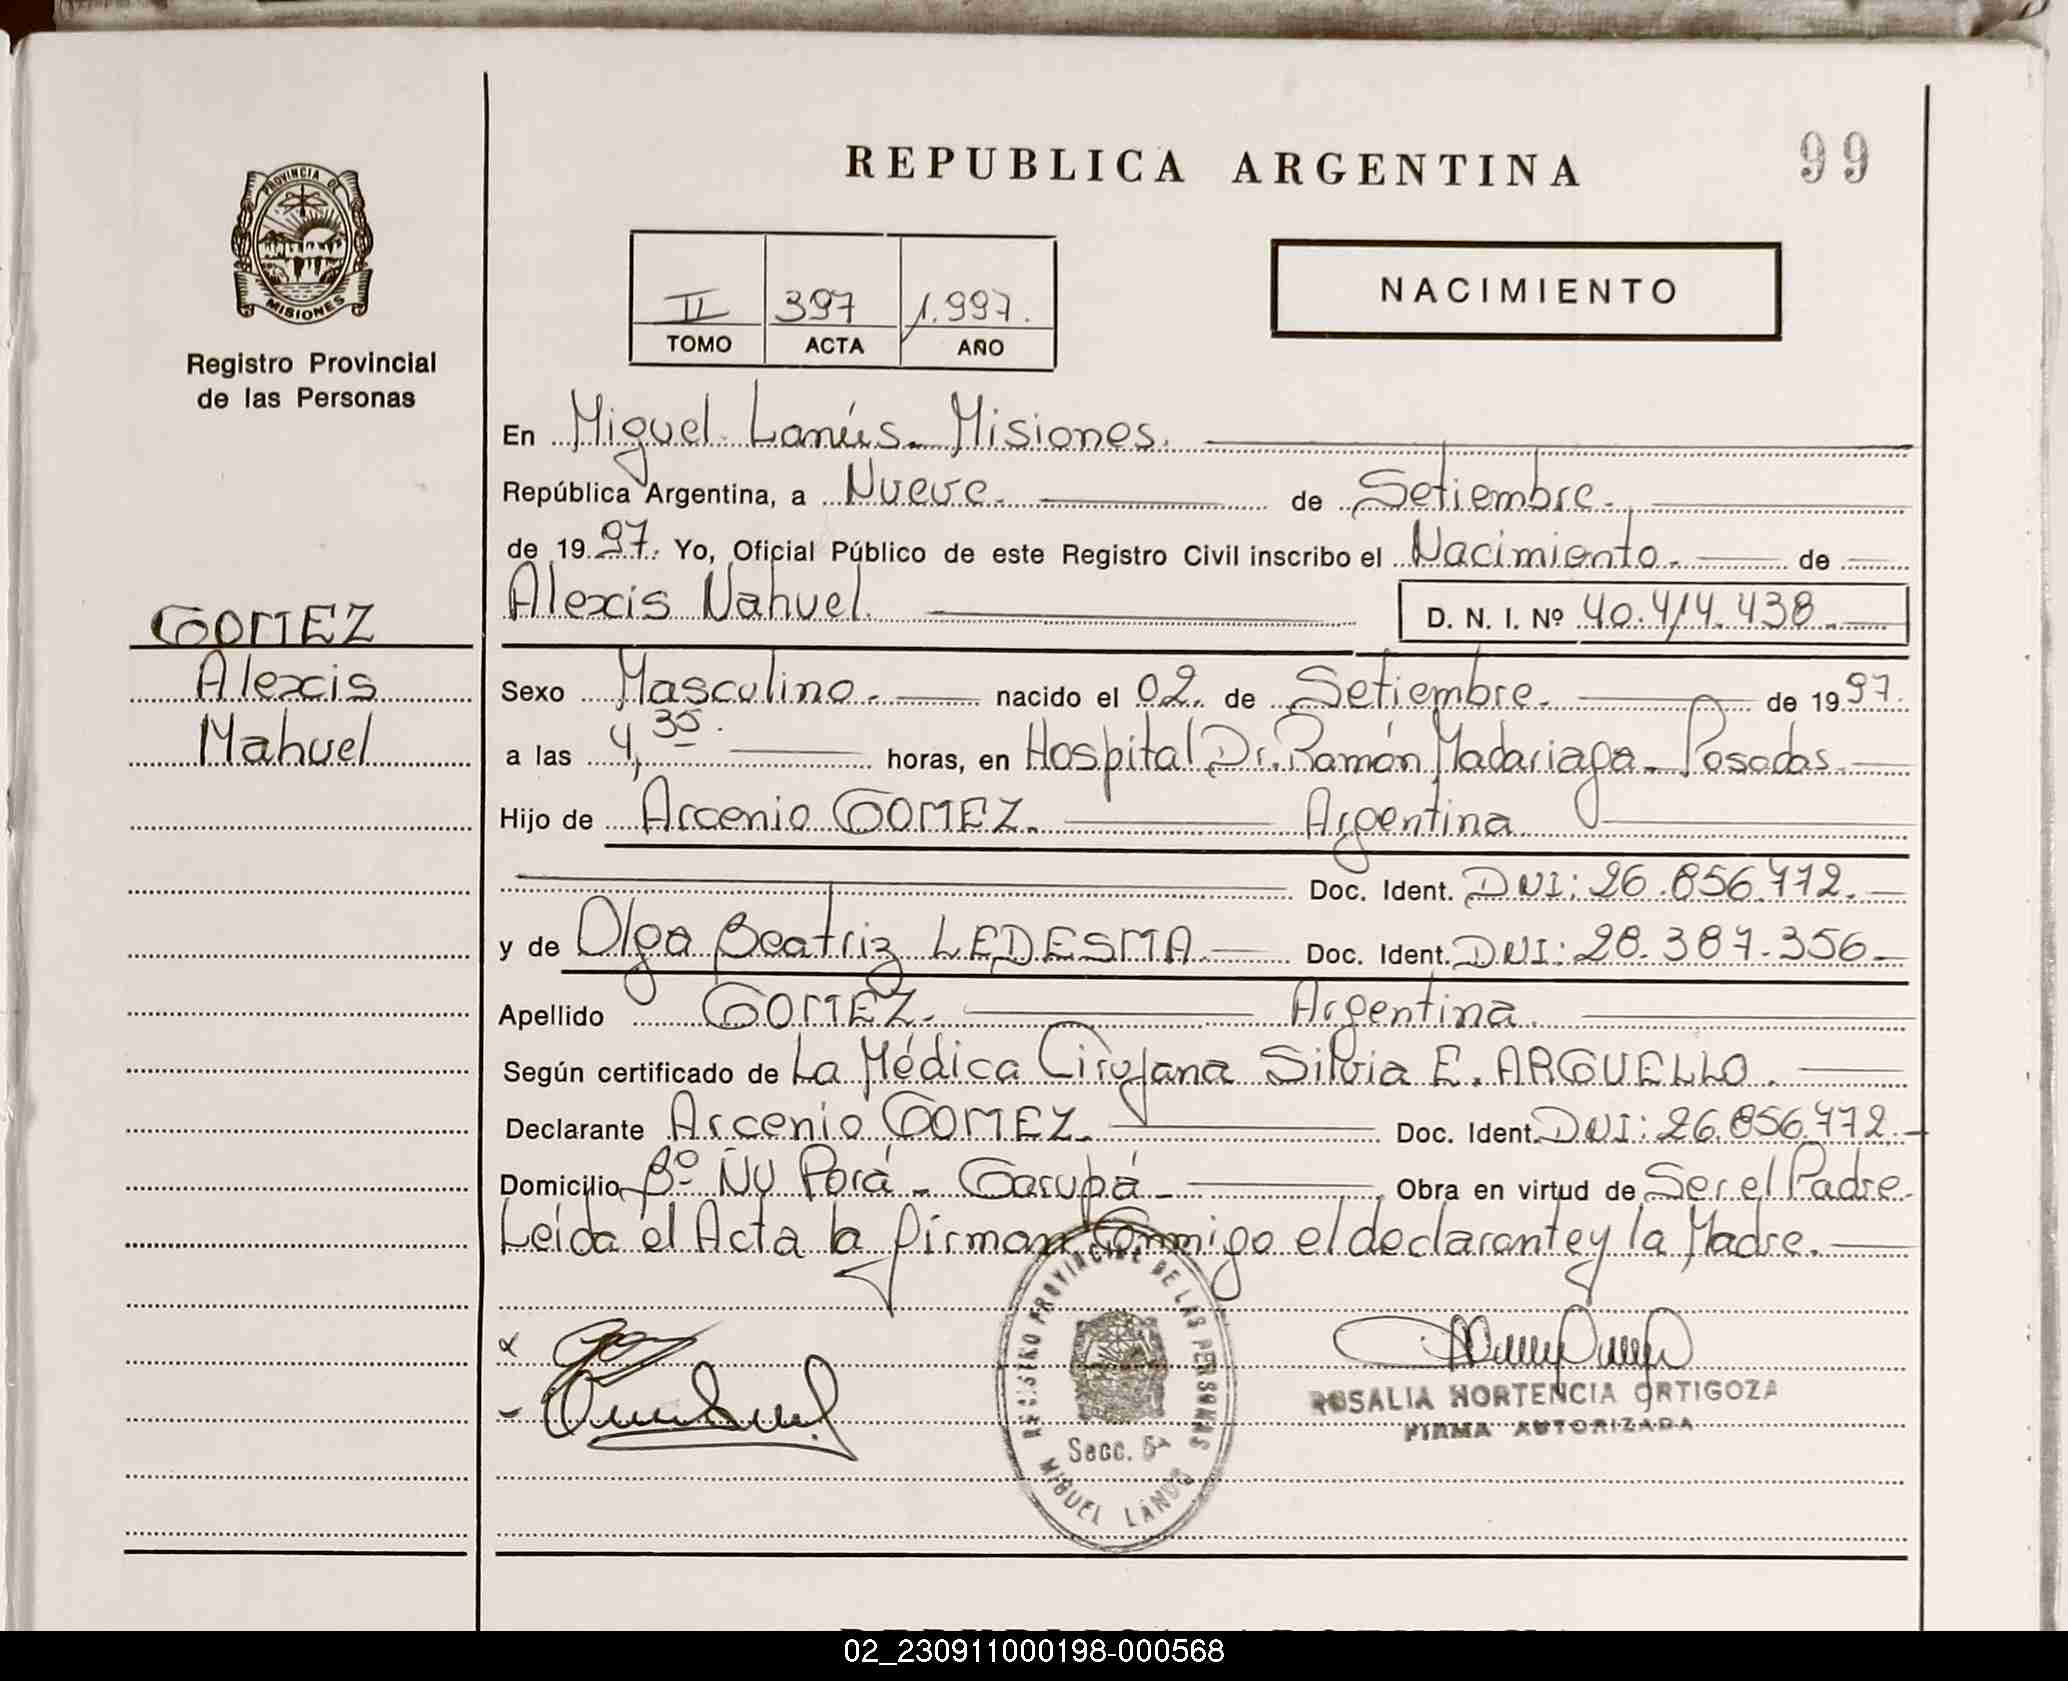 REPUBLICA ARGENTINA
99
PROVINCIA DE
MISIONES
Registro Provincial
de las Personas
II 397 1.997.
TOMO ACTA AÑO
NACIMIENTO
En Miguel Lanús. Misiones.
República Argentina, a Nueve. de Setiembre.
de 1997. Yo, Oficial Público de este Registro Civil inscribo el Nacimiento. de
Alexis Nahuel. D. N. I. Nº 40.414.438.
GOMEZ
Alexis
Nahuel
Sexo Masculino. nacido el 02. de Setiembre. de 1997.
a las 4,35. horas, en Hospital Dr. Ramón Madariaga. Posadas.
Hijo de Arcenio GOMEZ. Argentina
Doc. Ident. DNI: 26.856.772.
y de Olga Beatriz LEDESMA. Doc. Ident. DNI: 28.387.356
Apellido GOMEZ. Argentina.
Según certificado de La Médica Cirujana Silvia E. ARGUELLO.
Declarante Arcenio GOMEZ. Doc. Ident. DNI: 26.856.772.
Domicilio Bº Ñu Porá - Garupá - Obra en virtud de Ser el Padre.
Leída el Acta la firman Conmigo el declarante y la Madre.
REGISTRO PROVINCIAL DE LAS PERSONAS
Secc. 5ª
MIGUEL LANUS
ROSALIA HORTENCIA ORTIGOZA
FIRMA AUTORIZADA
02_230911000198-000568